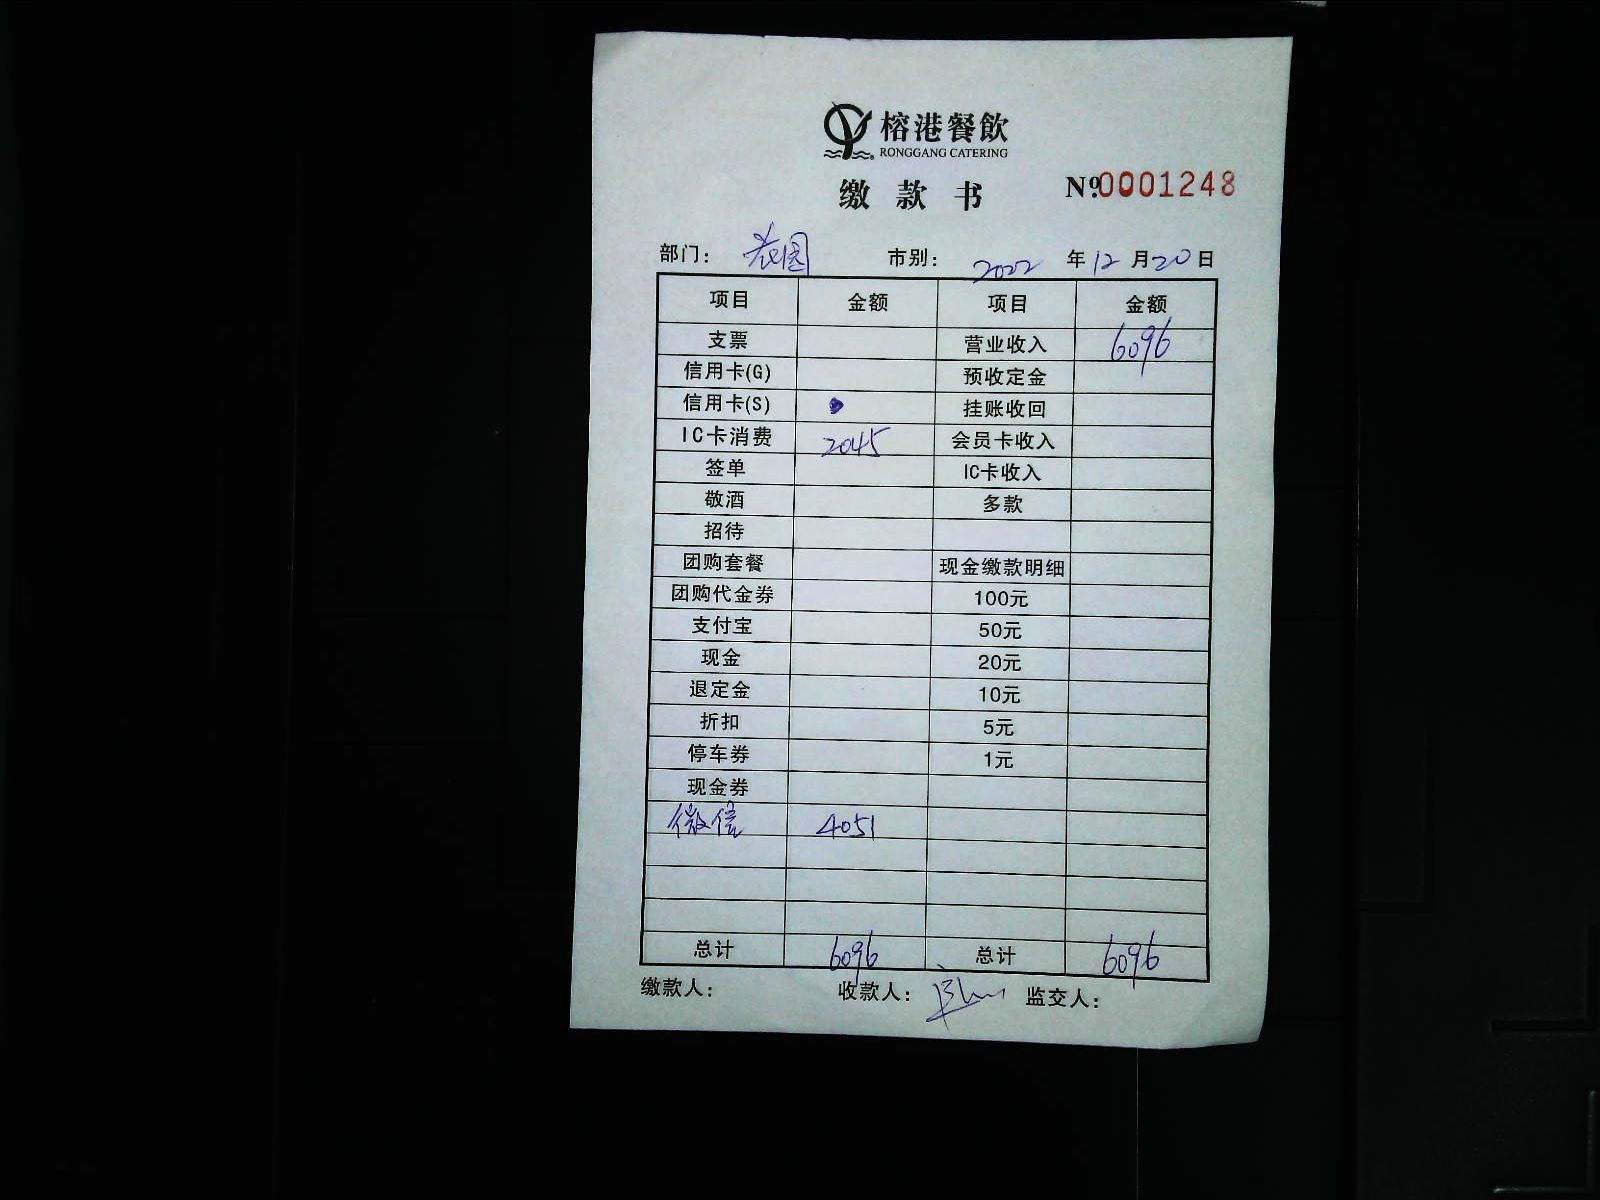 榕港餐飲
RONGGANG CATERING
缴款书
№0001248
部门： 市别： 2022年12月20日
项目 金额 项目 金额
支票 营业收入 6096
信用卡(G) 预收定金
信用卡(S) 挂账收回
IC卡消费 2045 会员卡收入
签单 IC卡收入
敬酒 多款
招待
团购套餐 现金缴款明细
团购代金券 100元
支付宝 50元
现金 20元
退定金 10元
折扣 5元
停车券 1元
现金券
微信 4051
总计 6096 总计 6096
缴款人： 收款人： 监交人：